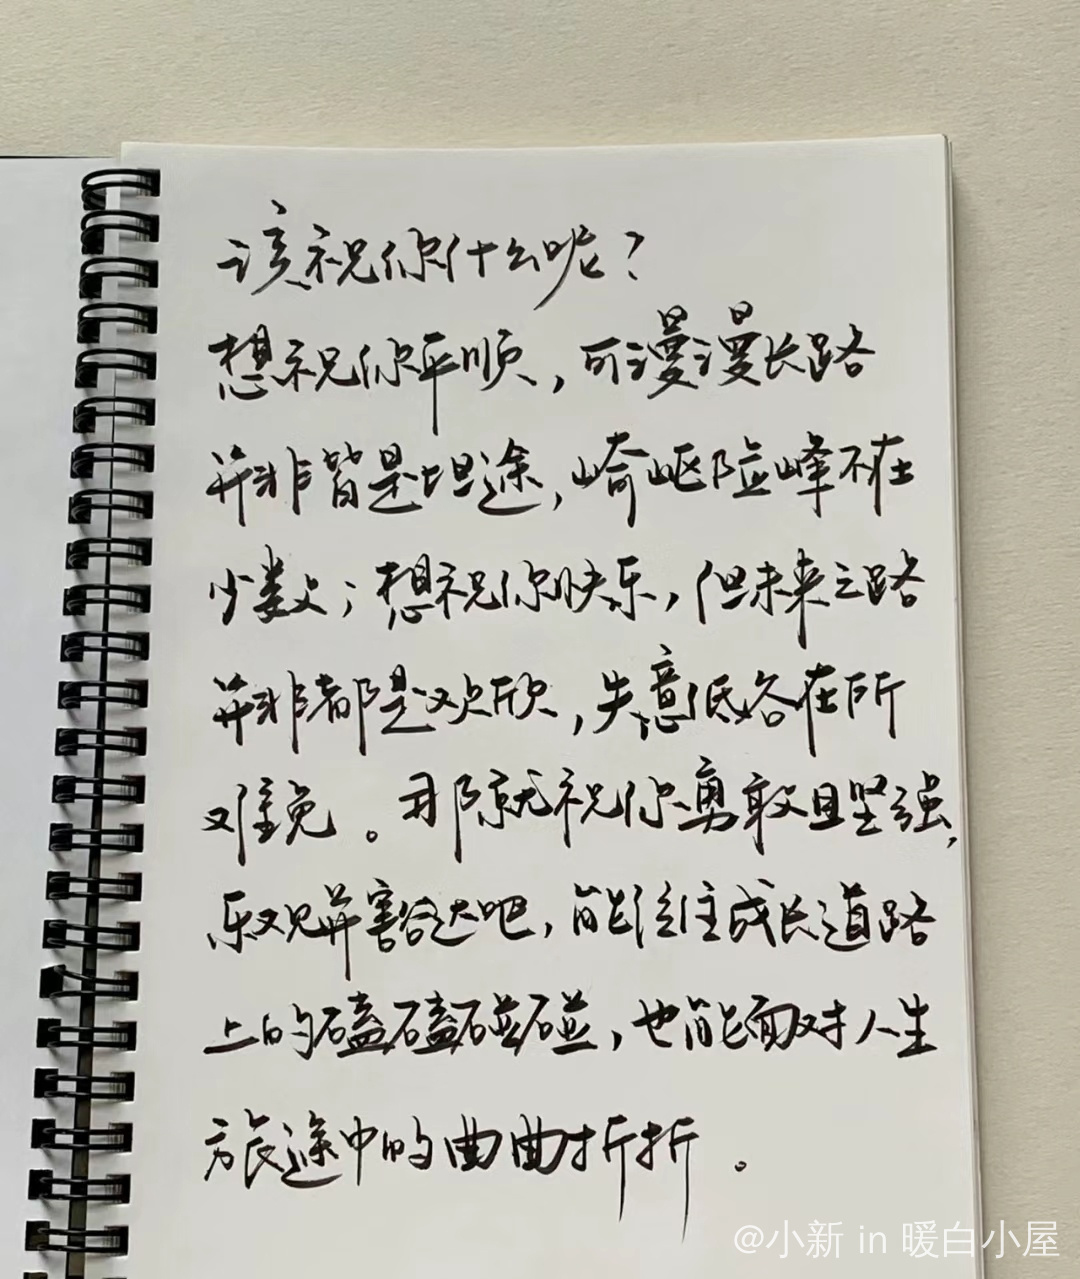 该祝你什么呢？
想祝你平顺，可漫漫长路
并非皆是坦途，崎岖险峰不在
少数；想祝你快乐，但未来之路
并非都是欢欣，失意低谷在所
难免。那就祝你勇敢且坚强，
乐观并豁达吧，能经住成长道路
上的磕磕碰碰，也能面对人生
旅途中的曲曲折折。
@小新 in 暖白小屋